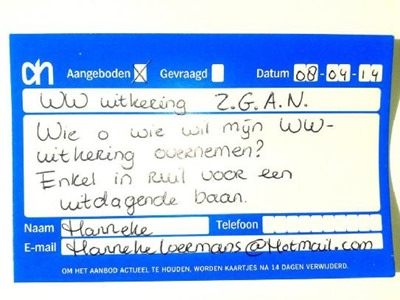 ah Aangeboden Gevraagd Datum 08-04-14
WW uitkering Z.G.A.N.
Wie o wie wil mijn WW-
uitkering overnemen?
Enkel in ruil voor een
uitdagende baan.
Naam Hanneke Telefoon
E-mail HannekeLoermans@Hotmail.com
OM HET AANBOD ACTUEEL TE HOUDEN, WORDEN KAARTJES NA 14 DAGEN VERWIJDERD.